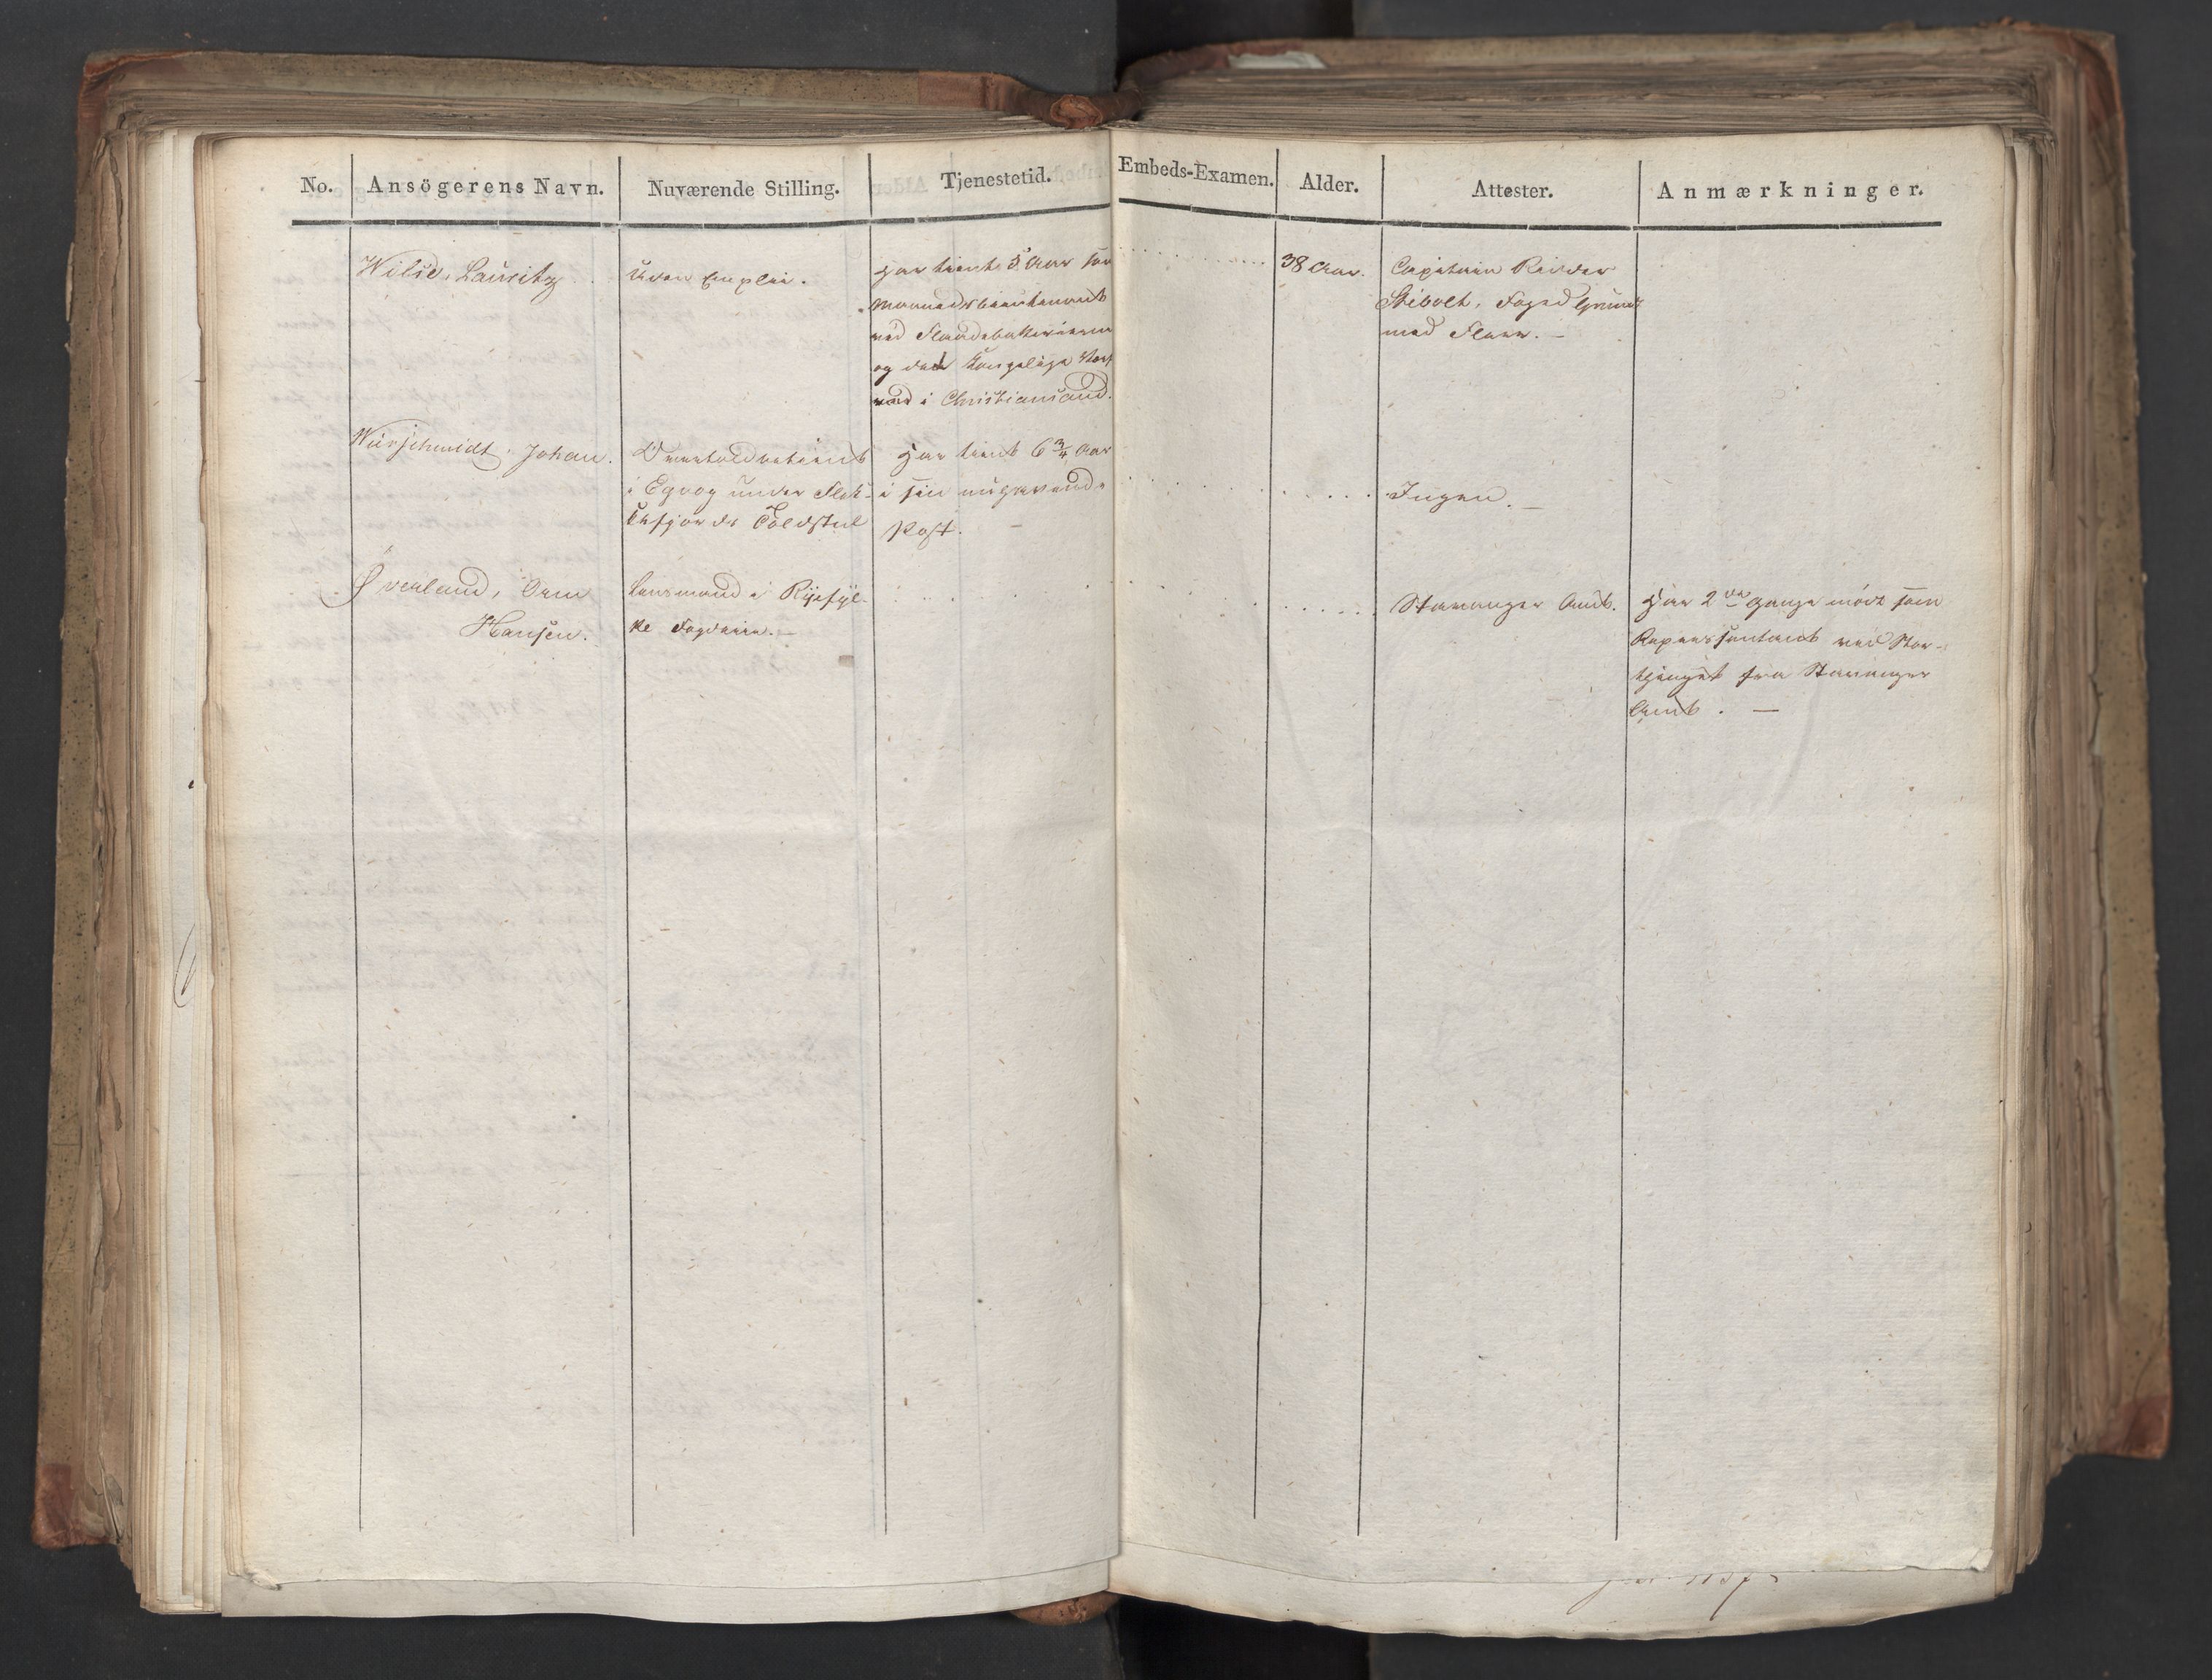 No.
Ansögerens Navn.
Nuværende Stilling.
Tjenestetid.
Embeds-Examen.
Alder.
Attester.
Anmærkninger.
Wilse, Lauritz
Uden Emploi.
Har tient 5 Aar som
Maanedslieutenant
ved Flaadebatterierne
og det Kongelige
i Christiansand.
38 Aar.
Capitain Reider
Stibolt, Foged
med Flere. —
Würschmidt, Johan.
Overtoldbetient
i Egvog under Flek-
kefjords Toldsted
Har tient 6 3/4 Aar
i sin nuværende
Post. —
Ingen. —
Øverland, Orm
Hansen.
Lensmand i Ryefyl-
ke Fogderie. —
Stavanger Amt.
Har 2de Gange mødt som
Repræsentant ved Stor-
thinget fra Stavanger
Amt. —